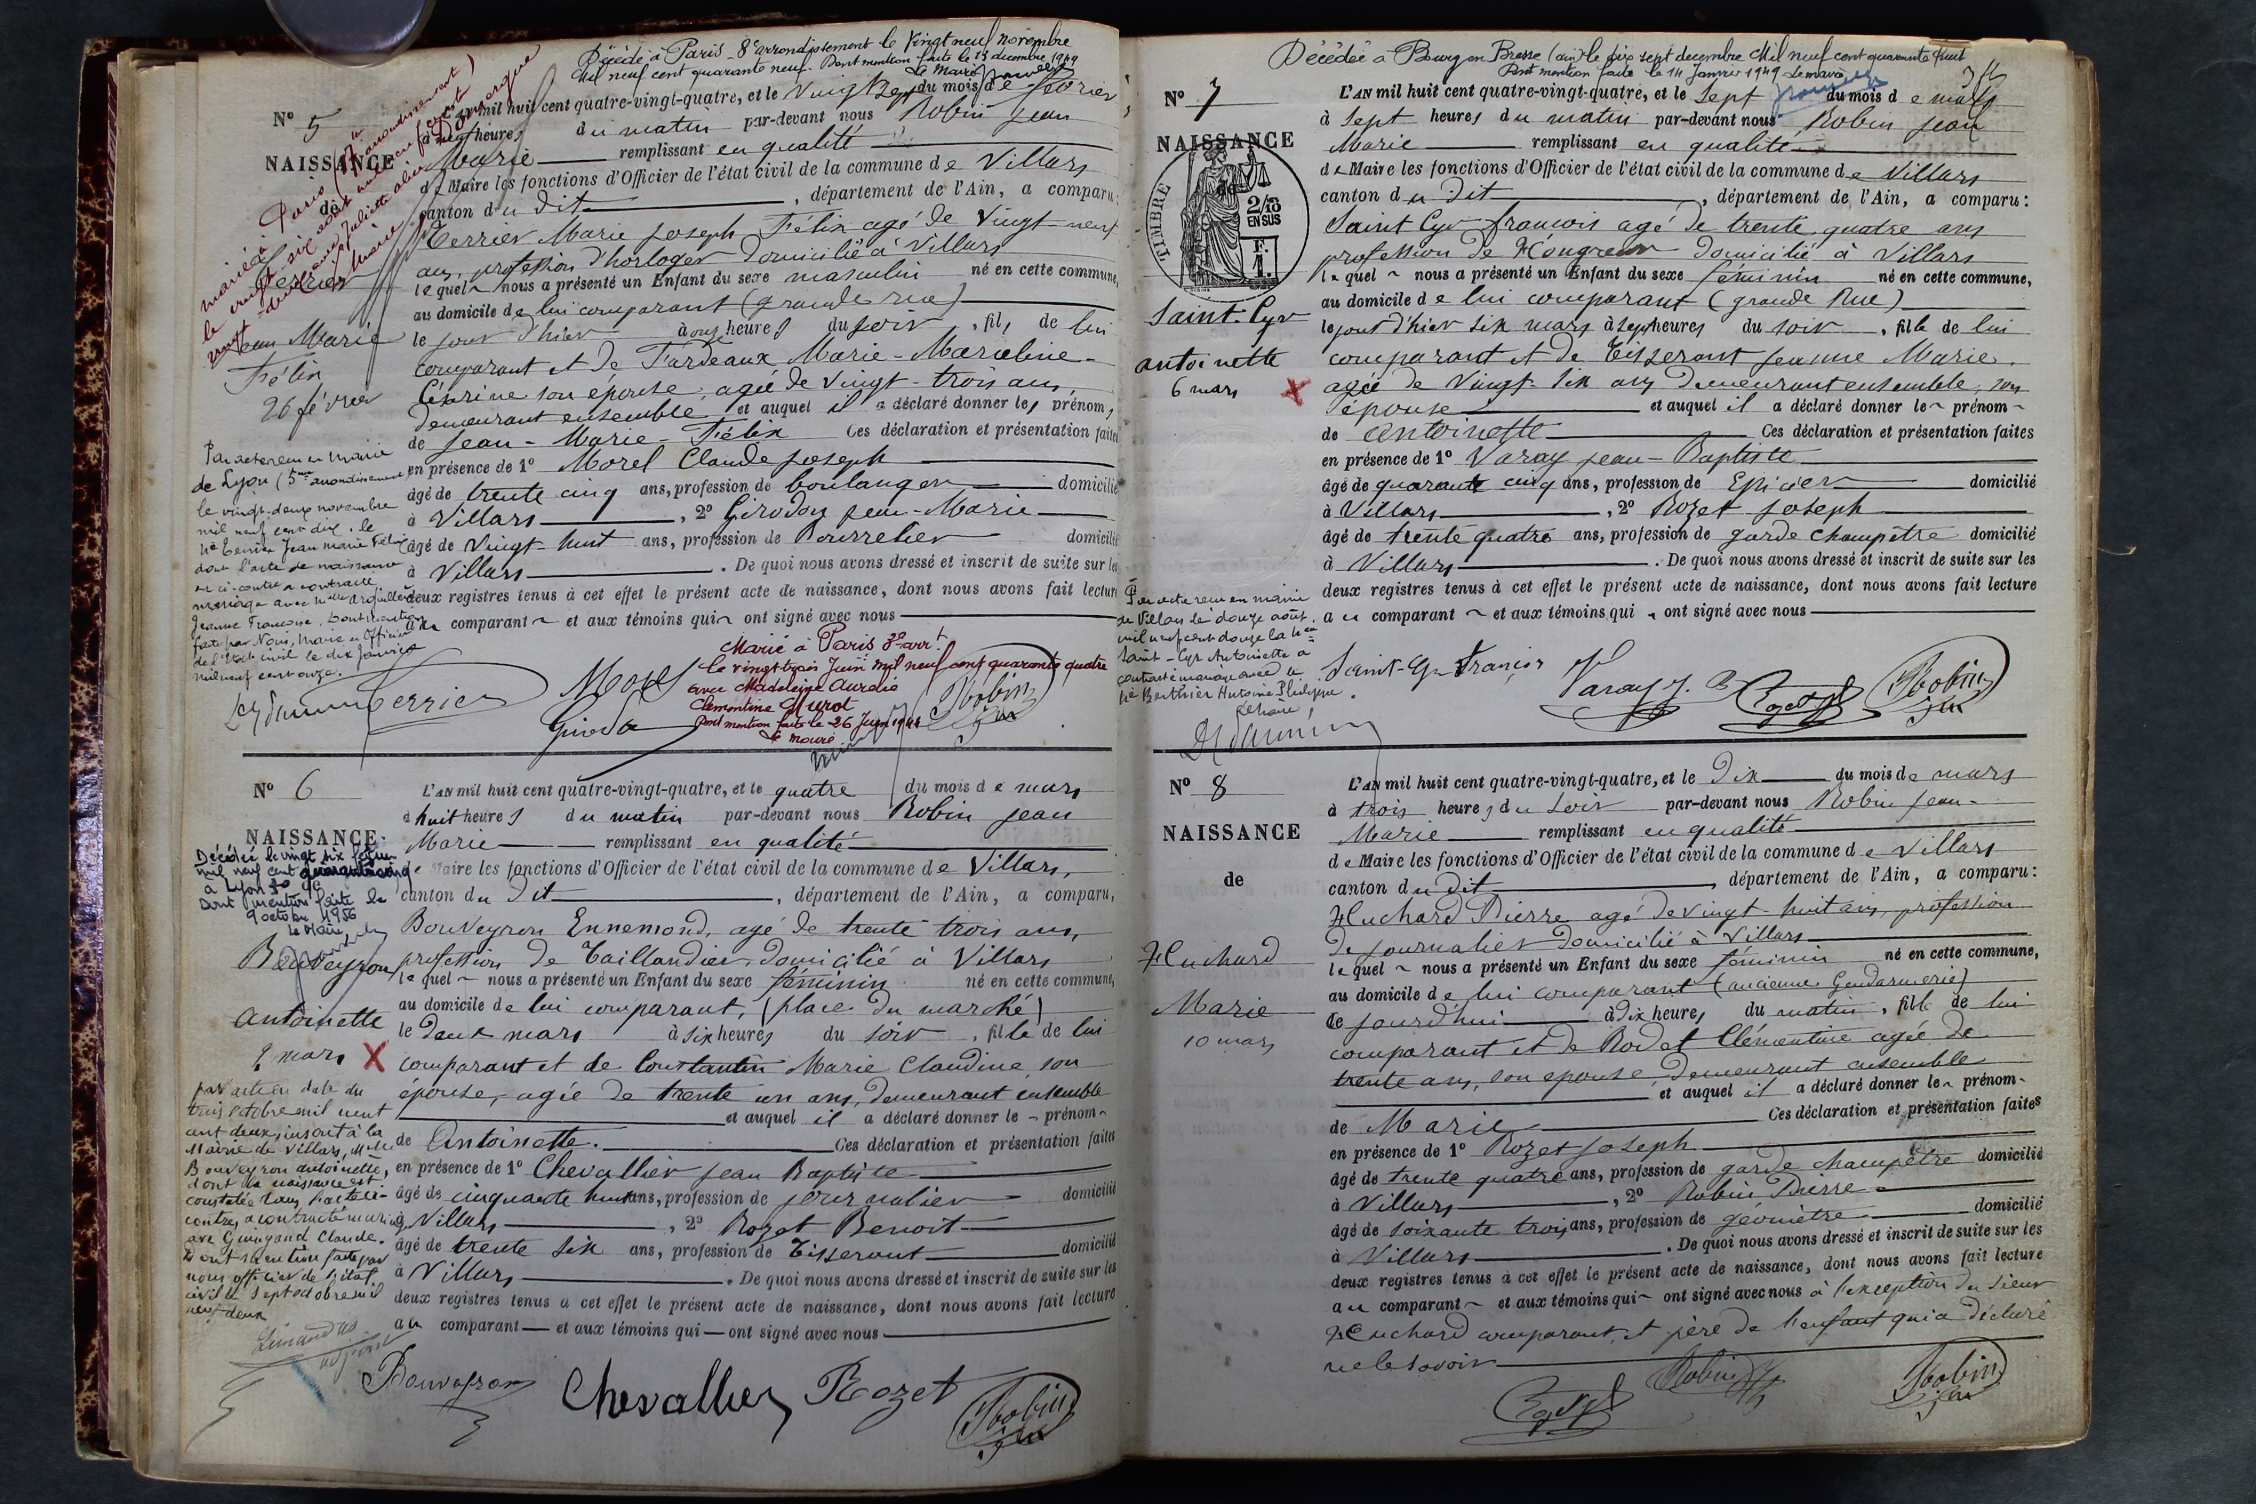 Décédé à Paris 8e arrondissement le vingt neuf novembre
mil neuf cent quarante neuf. Dont mention faite le 13 décembre 1949
Le Maire
N° 5
NAISSANCE
de
Terrier
Jean Marie
Félix
26 février
marié à Paris
L'AN mil huit cent quatre-vingt-quatre, et le vingt sept du mois de février
heures du matin par-devant nous Robin Jean
Marie remplissant en qualité
de Maire les fonctions d'Officier de l'état civil de la commune de Villars
canton du dit, département de l'Ain, a comparu:
Terrier Marie Joseph Félix agé de vingt-neuf
ans, profession d'horloger domicilié à Villars
lequel nous a présenté un Enfant du sexe masculin né en cette commune,
au domicile de lui comparant (grande rue)
le jour d'hier à onze heures du soir, fils de lui
comparant et de Fardeaux Marie-Marceline-
Césarine son épouse, agée de vingt-trois ans,
demeurant ensemble et auquel il a déclaré donner les prénoms
de Jean-Marie-Félix Ces déclaration et présentation faites
en présence de 1° Morel Claude Joseph
âgé de trente cinq ans, profession de boulanger domicilié
à Villars, 2° Girodon Jean-Marie
âgé de vingt-huit ans, profession de Bourrelier domicilié
à Villars. De quoi nous avons dressé et inscrit de suite sur les
deux registres tenus à cet effet le présent acte de naissance, dont nous avons fait lecture
au comparant et aux témoins qui ont signé avec nous
Par acte reçu en mairie
de Lyon (5me arrondissement)
le vingt-deux novembre
mil neuf cent dix, le
né Terrier Jean Marie Félix
dont l'acte de naissance
est ci-contre a contracté
mariage avec
Jeanne Françoise. Dont mention
faite par Nous, Maire et Officier
de l'Etat civil le dix janvier
mil neuf cent onze.
Marié à Paris 3e arrt
le vingt trois Juin mil neuf cent quarante quatre
avec Madeleine Aurélie
Clémentine Gurot
Dont mention faite le 26 Juin 1944
Le maire
Terrier
Morel
Girodon
Robin
N° 6
NAISSANCE
Décédée le vingt six
mil neuf cent
à Lyon
Dont mention faite le
9 octobre 1956
Le Maire
Bouveyron
Antoinette
2 mars X
L'AN mil huit cent quatre-vingt-quatre, et le quatre du mois de mars
à huit heures du matin par-devant nous Robin Jean
Marie remplissant en qualité
de Maire les fonctions d'Officier de l'état civil de la commune de Villars,
canton du dit, département de l'Ain, a comparu,
Bouveyron Ennemond, agé de trente trois ans,
profession de Taillandier, domicilié à Villars
lequel nous a présenté un Enfant du sexe féminin né en cette commune,
au domicile de lui comparant, (place du marché)
le deux mars à six heures du soir, fille de lui
comparant et de Constantin Marie Claudine, son
épouse, agée de trente un ans, demeurant ensemble
et auquel il a déclaré donner le prénom
de Antoinette. Ces déclaration et présentation faites
en présence de 1° Chevallier Jean Baptiste
âgé de cinquante huit ans, profession de journalier domicilié
à Villars, 2° Rozet Benoit
âgé de trente six ans, profession de Tisserant domicilié
à Villars. De quoi nous avons dressé et inscrit de suite sur les
deux registres tenus a cet effet le présent acte de naissance, dont nous avons fait lecture
au comparant et aux témoins qui ont signé avec nous
par acte en date du
trois octobre mil neuf
cent deux, inscrit à la
Mairie de Villars, Mlle
Bouveyron Antoinette,
dont la naissance est
constatée dans l'acte ci-
contre, a contracté mariage
avec Guingand Claude.
Dont mention faite par
nous officier de l'état
civil le sept octobre mil
neuf deux
Bouveyron
Chevallier
Rozet
Robin
Décédée à Bourg en Bresse (ain) le dix sept décembre mil neuf cent quarante huit
Dont mention faite le 14 Janvier 1949 Le maire
N° 7
NAISSANCE
TIMBRE
2/10
EN SUS
F.
1.
Saint-Cyr
Antoinette
6 mars X
L'AN mil huit cent quatre-vingt-quatre, et le sept du mois de mars
à sept heures du matin par-devant nous Robin Jean
Marie remplissant en qualité
de Maire les fonctions d'Officier de l'état civil de la commune de Villars
canton du dit, département de l'Ain, a comparu:
Saint Cyr François agé de trente quatre ans
profession de Hongreur domicilié à Villars
lequel nous a présenté un Enfant du sexe féminin né en cette commune,
au domicile de lui comparant (grande Rue)
le jour d'hier six mars à sept heures du soir, fille de lui
comparant et de Tisserant Jeanne Marie,
agée de vingt-six ans demeurant ensemble, son
épouse et auquel il a déclaré donner le prénom
de Antoinette Ces déclaration et présentation faites
en présence de 1° Varay Jean-Baptiste
âgé de quarante cinq ans, profession de Epicier domicilié
à Villars, 2° Rozet Joseph
âgé de trente quatre ans, profession de garde champêtre domicilié
à Villars. De quoi nous avons dressé et inscrit de suite sur les
deux registres tenus à cet effet le présent acte de naissance, dont nous avons fait lecture
au comparant et aux témoins qui ont signé avec nous
Par acte reçu en mairie
de Villars le douze août
mil neuf cent douze la née
Saint-Cyr Antoinette a
contracté mariage avec le
né Berthier Antoine Philippe.
Le Maire
Saint-Cyr François
Varay J. B.
Rozet
Robin
N° 8
NAISSANCE
de
Huchard
Marie
10 mars
L'AN mil huit cent quatre-vingt-quatre, et le dix du mois de mars
à trois heures du soir par-devant nous Robin Jean-
Marie remplissant en qualité
de Maire les fonctions d'Officier de l'état civil de la commune de Villars
canton du dit, département de l'Ain, a comparu:
Huchard Pierre agé de vingt-huit ans, profession
de journalier domicilié à Villars
lequel nous a présenté un Enfant du sexe féminin né en cette commune,
au domicile de lui comparant (ancienne Gendarmerie)
ce jourd'hui à dix heures du matin, fille de lui
comparant et de Rodet Clémentine agée de
trente ans, son épouse demeurant ensemble
et auquel il a déclaré donner le prénom
de Marie Ces déclaration et présentation faites
en présence de 1° Rozet Joseph
âgé de trente quatre ans, profession de garde champêtre domicilié
à Villars, 2° Robin Pierre
âgé de soixante trois ans, profession de géomètre domicilié
à Villars. De quoi nous avons dressé et inscrit de suite sur les
deux registres tenus à cet effet le présent acte de naissance, dont nous avons fait lecture
au comparant et aux témoins qui ont signé avec nous à l'exception du sieur
Huchard comparant et père de l'enfant qui a déclaré
ne le savoir
Rozet
Robin
Robin